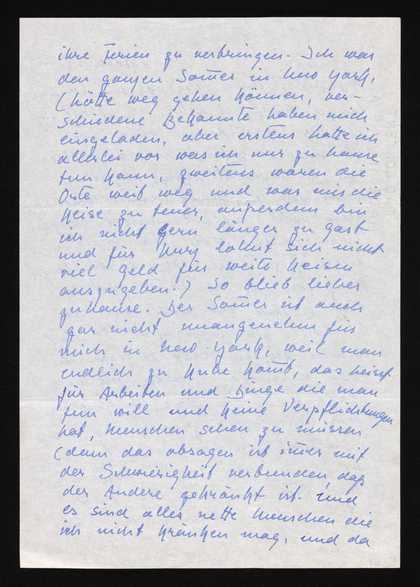 ihre Ferien zu verbringen. Ich war
den ganzen Som̅er in New York,
(hätte weg gehen können, ver-
schiedene Bekannte haben mich
eingeladen, aber erstens hatte ich
allerlei vor was ich nur zu hause
tun kann, zweitens waren die
Orte weit weg und war mir die
Reise zu teuer, ausserdem bin
ich nicht gern länger zu gast
und für kurz lohnt sich nicht
viel Geld für weite Reisen
auszugeben.) So blieb lieber
zuhause. Der Som̅er ist auch
gar nicht unangenehm für
mich in New York, weil man
endlich zu Ruhe kom̅t, das heisst
für Arbeiten und Dinge die man
tun will und keine Verpflichtungen
hat, Menschen sehen zu müssen
(denn das absagen ist im̅er mit
der Schwierigkeit verbunden, dass
der Andere gekränkt ist. Und
es sind alles nette Menschen die
ich nicht kränken mag, und da